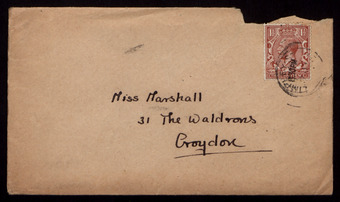 Miss Marshall
31 The Waldrons
Croydon